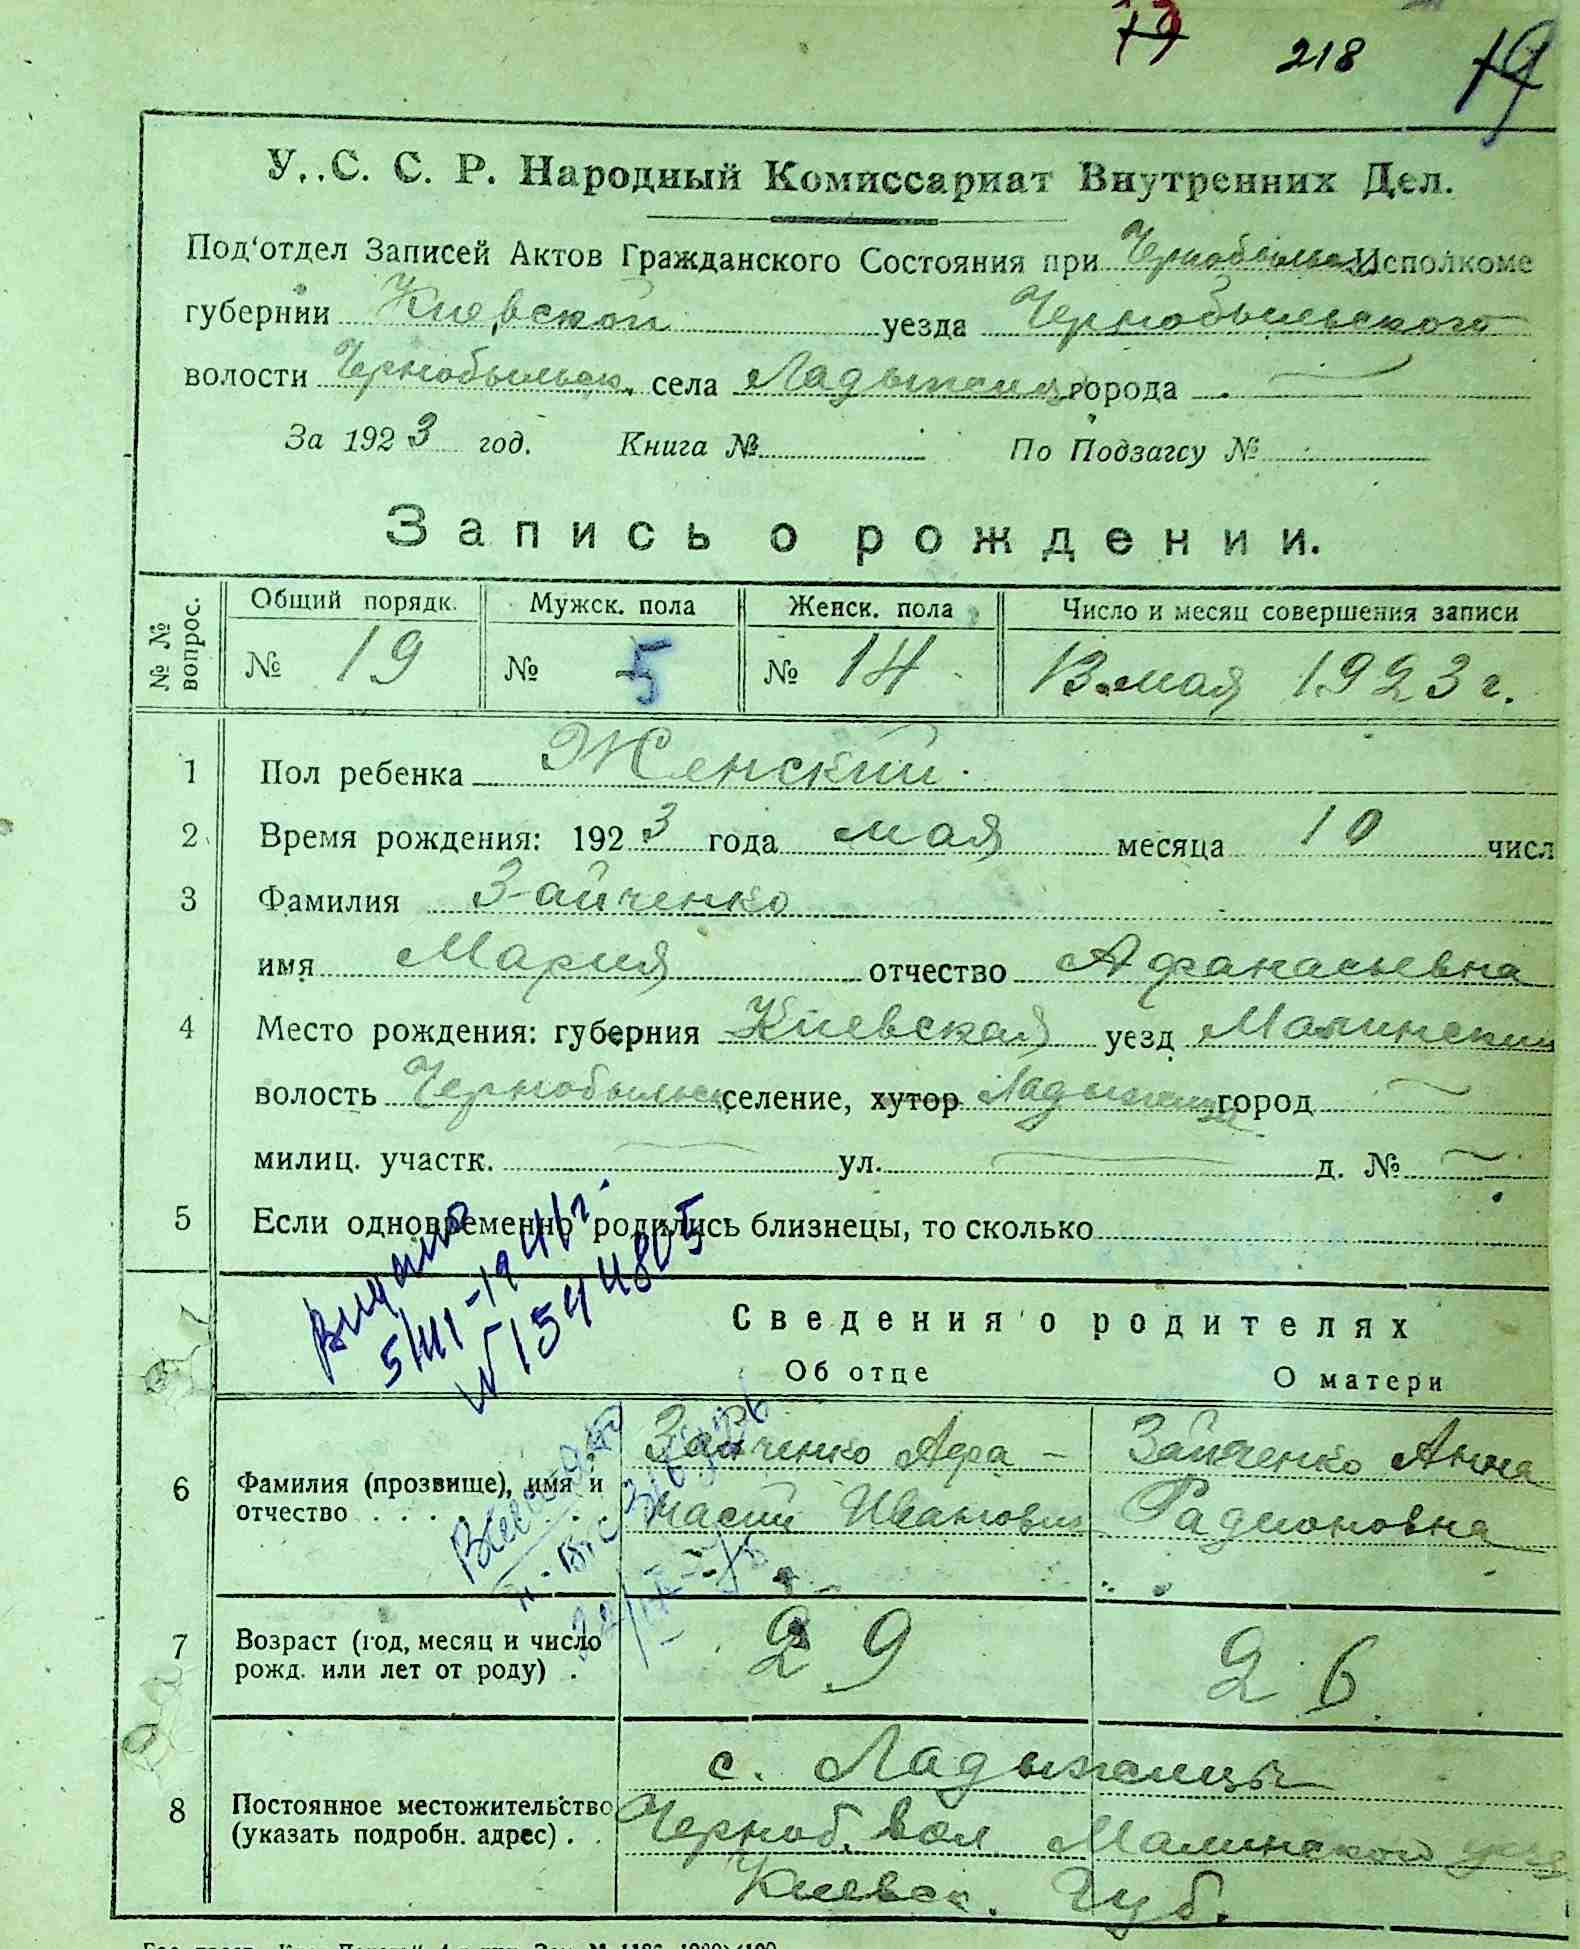 79 218 19
У. С. С. Р. Народный Комиссариат Внутренних Дел.
Под'отдел Записей Актов Гражданского Состояния при Чернобыльск Исполкоме
губернии Киевской уезда Чернобыльского
волости Чернобыльск. села Ладыжичи города —
За 1923 год. Книга № По Подзагсу №
Запись о рождении.
№ № вопрос. Общий порядк. Мужск. пола Женск. пола Число и месяц совершения записи
№ 19 № 5 № 14 13 мая 1923 г.
1 Пол ребенка Женский.
2 Время рождения: 1923 года мая месяца 10 числ
3 Фамилия Зайченко
имя Мария отчество Афанасьевна
4 Место рождения: губерния Киевская уезд Малинский
волость Чернобыльск селение, хутор Ладыжичи город —
милиц. участк. — ул. — д. № —
5 Если одновременно родились близнецы, то сколько
Видано
5/III-1941 г.
№ 1544805
Сведения о родителях
Об отце О матери
6 Фамилия (прозвище), имя и
отчество . . . .
Зайченко Афа-
насий Иванович
Зайченко Анна
Радионовна
7 Возраст (год, месяц и число
рожд. или лет от роду) .
29 26
8 Постоянное местожительство
(указать подробн. адрес) . .
с. Ладыжичи
Черноб. вол Малинской
Киевск. Губ.